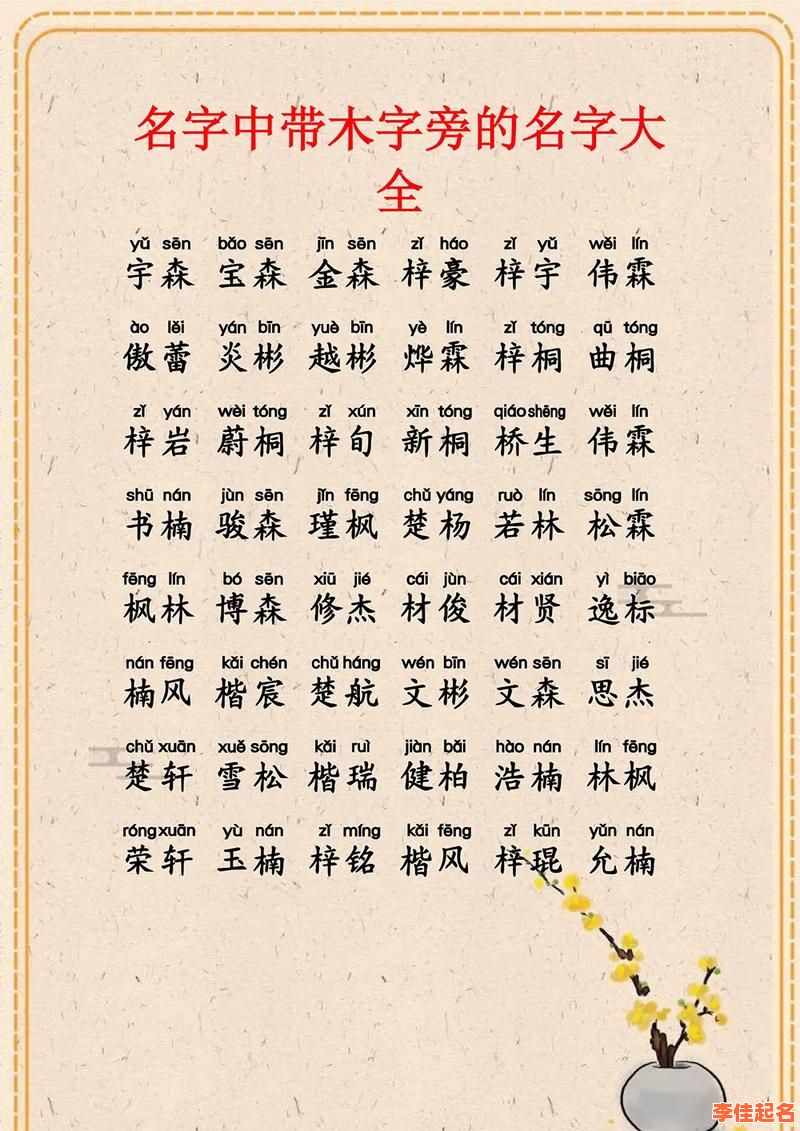 名字中带木字旁的名字大
全
yǔ sēn bǎo sēn jīn sēn zǐ háo zǐ yǔ wěi lín
宇森 宝森 金森 梓豪 梓宇 伟霖
ào lěi yán bīn yuè bīn yè lín zǐ tóng qū tóng
傲蕾 炎彬 越彬 烨霖 梓桐 曲桐
zǐ yán wèi tóng zǐ xún xīn tóng qiáo shēng wěi lín
梓岩 蔚桐 梓旬 新桐 桥生 伟霖
shū nán jùn sēn jǐn fēng chǔ yáng ruò lín sōng lín
书楠 骏森 瑾枫 楚杨 若林 松霖
fēng lín bó sēn xiū jié cái jùn cái xián yì biāo
枫林 博森 修杰 材俊 材贤 逸标
nán fēng kǎi chén chǔ háng wén bīn wén sēn sī jié
楠风 楷宸 楚航 文彬 文森 思杰
chǔ xuān xuě sōng kǎi ruì jiàn bǎi hào nán lín fēng
楚轩 雪松 楷瑞 健柏 浩楠 林枫
róng xuān yù nán zǐ míng kǎi fēng zǐ kūn yǔn nán
荣轩 玉楠 梓铭 楷风 梓琨 允楠
李佳起名